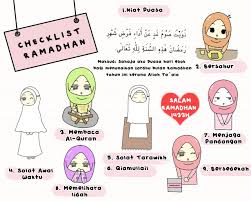 CHECKLIST
RAMADHAN
1.Niat Puasa
نَوَيْتُ صَوْمَ غَدٍ عَنْ أَدَاءِ فَرْضِ شَهْرِ
رَمَضَانَ هَذِهِ السَّنَةِ لِلَّهِ تَعَالَى
Maksud: Sahaja aku puasa hari esok
bagi menunaikan fardhu puasa Ramadhan
tahun ini kerana Allah Ta'ala
2. Bersahur
3. Membaca
Al-Quran
SALAM
RAMADHAN
4. Solat Awal
Waktu
5. Solat Tarawikh
6. Qiamullail
7. Menjaga
Pandangan
8. Memelihara
Lidah
9. Bersedekah